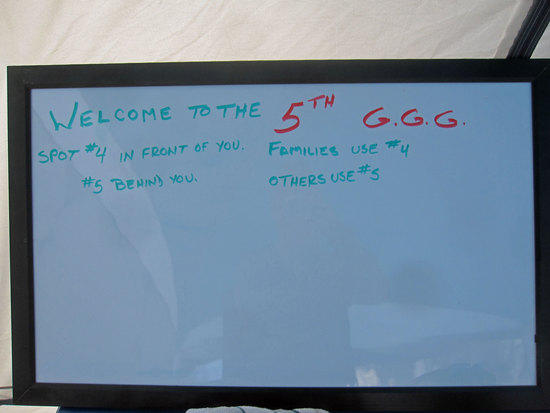 WELCOME TO THE 5TH G.G.G.
SPOT #4 IN FRONT OF YOU. FAMILIES USE #4
#5 BEHIND YOU. OTHERS USE #5